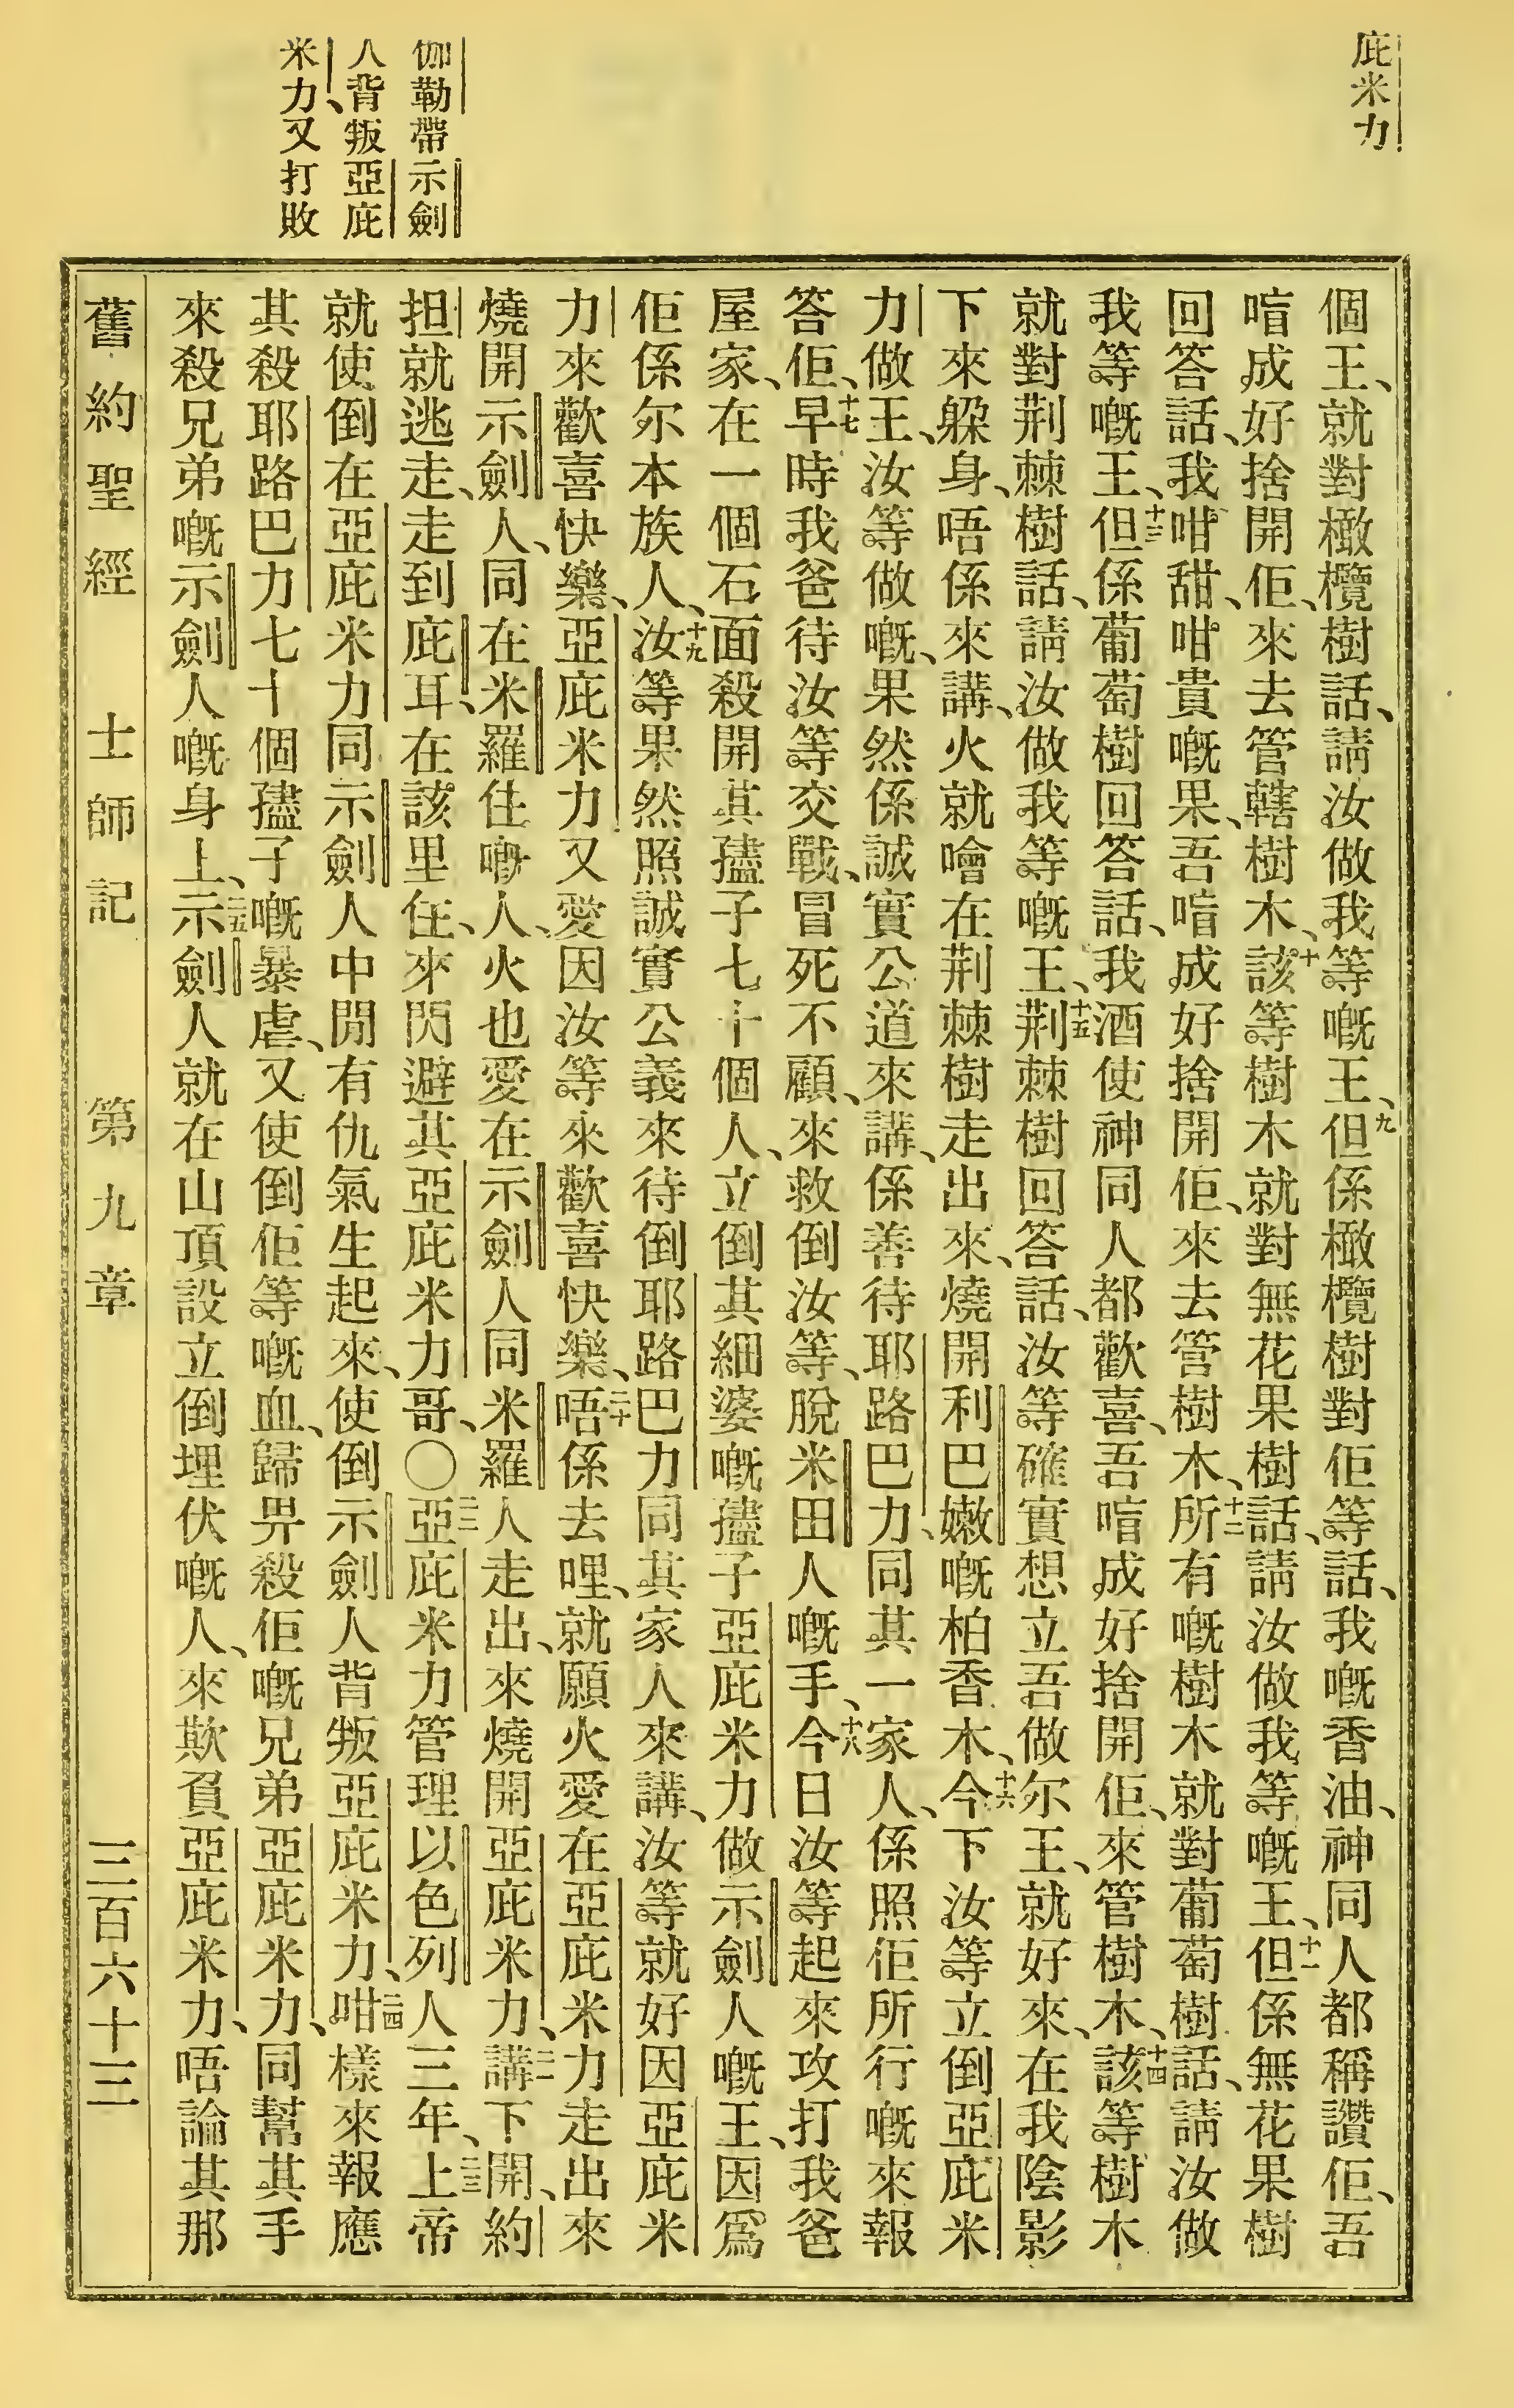 庇米力
伽勒帶示劍
人背叛亞庇
米力、又打敗
個王、就對橄欖樹話、請汝做我等嘅王、九但係橄欖樹對佢等話、我嘅香油、神同人都稱讚佢、吾
㖡成好捨開佢、來去管轄樹木、十該等樹木就對無花果樹話、請汝做我等嘅王、十一但係無花果樹
回答話、我咁甜、咁貴嘅果、吾㖡成好捨開佢、來去管樹木、十二所有嘅樹木就對葡萄樹話、請汝做
我等嘅王、十三但係葡萄樹回答話、我酒使神同人都歡喜、吾㖡成好捨開佢、來管樹木、十四該等樹木
就對荆棘樹話、請汝做我等嘅王、十五荆棘樹回答話、汝等確實想立吾做尔王、就好來、在我陰影
下來躲身、唔係來講、火就噲在荆棘樹走出來、燒開利巴嫩嘅柏香木、十六今下汝等立倒亞庇米
力做王、汝等做嘅、果然係誠實公道來講、係善待耶路巴力、同其一家人、係照佢所行嘅來報
答佢、十七早時我爸待汝等交戰、冒死不顧、來救倒汝等、脫米田人嘅手、十八今日汝等起來攻打我爸
屋家、在一個石面殺開其孻子七十個人、立倒其細婆嘅孻子亞庇米力做示劍人嘅王、因爲
佢係尔本族人、十九汝等果然照誠實公義來待倒耶路巴力同其家人來講、汝等就好因亞庇米
力來歡喜快樂、亞庇米力又愛因汝等來歡喜快樂、二十唔係去哩、就願火愛在亞庇米力走出來
燒開示劍人、同在米羅住嘅人、火也愛在示劍人同米羅人走出、來燒開亞庇米力、二一講下開、約
担就逃走、走到庇耳、在該里住、來閃避其亞庇米力哥、〇二二亞庇米力管理以色列人三年、二三上帝
就使倒在亞庇米力同示劍人中間有仇氣生起來、使倒示劍人背叛亞庇米力、二四咁樣來報應
其殺耶路巴力七十個孻子嘅暴虐、又使倒佢等嘅血、歸畀殺佢嘅兄弟亞庇米力、同幫其手
來殺兄弟嘅示劍人嘅身上、二五示劍人就在山頂設立倒埋伏嘅人、來欺負亞庇米力、唔論其那
舊約聖經　士師記　第九章　三百六十三